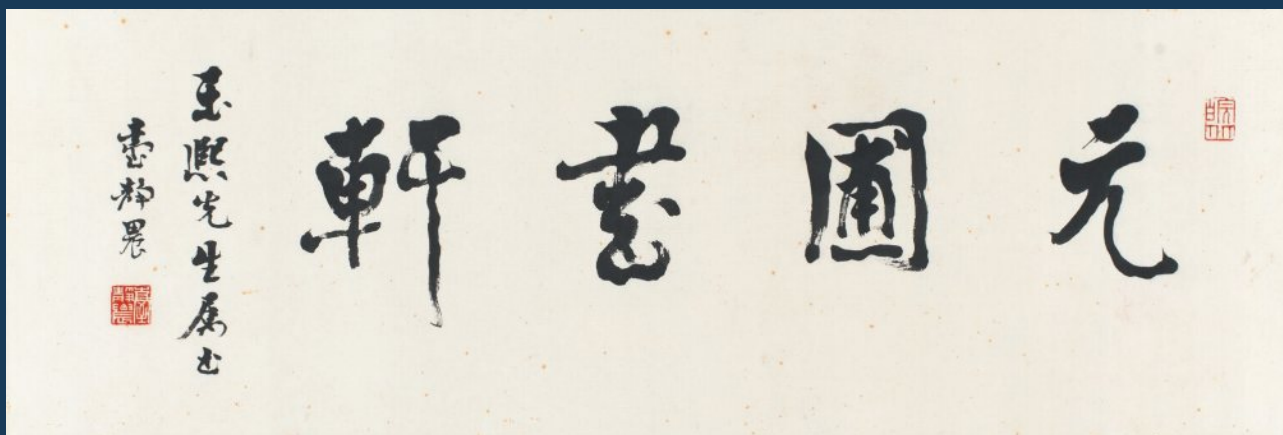 元圃書軒
玉熙先生属书
臺靜農